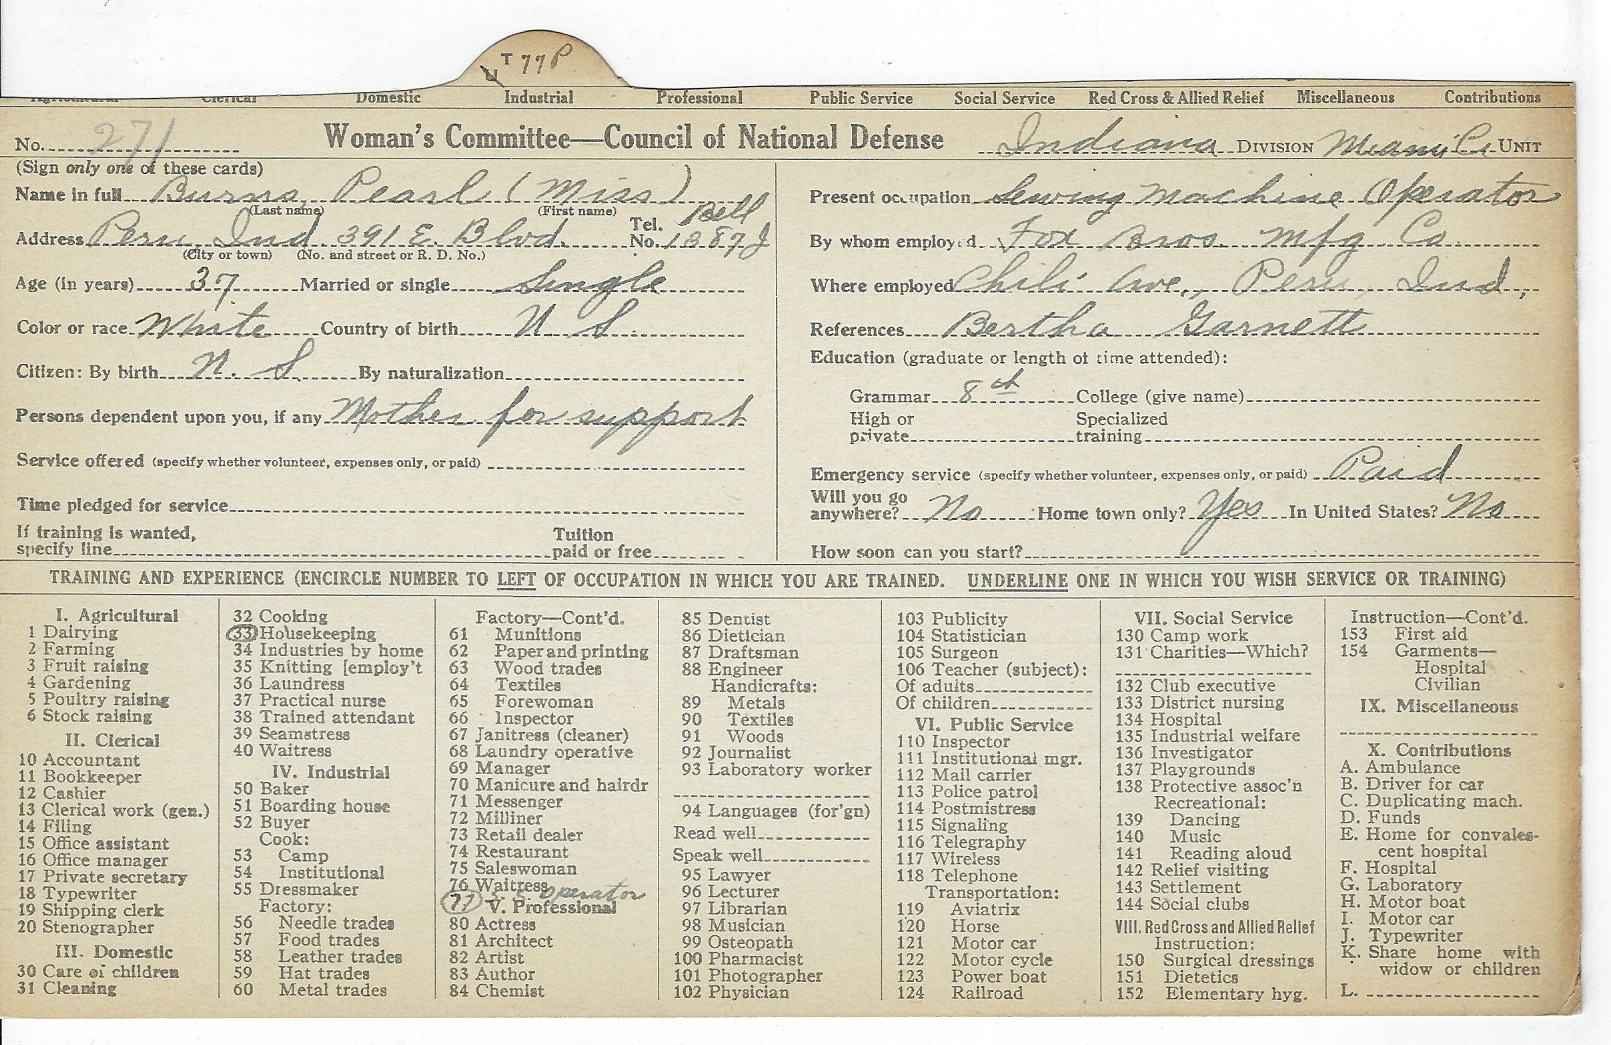 T 77P
U
Agricultural Clerical Domestic Industrial Professional Public Service Social Service Red Cross & Allied Relief Miscellaneous Contributions
No. 271 Woman's Committee—Council of National Defense Indiana DIVISION Miami Co. UNIT
(Sign only one of these cards)
Name in full Burns, Pearl (Miss)
(Last name) (First name)
Address Peru, Ind. 391 E. Blvd. Tel. No. Bell 1387J
(City or town) (No. and street or R. D. No.)
Age (in years) 37 Married or single Single
Color or race White Country of birth U. S.
Citizen: By birth U. S. By naturalization
Persons dependent upon you, if any Mother for support
Service offered (specify whether volunteer, expenses only, or paid)
Time pledged for service
If training is wanted, specify line Tuition paid or free
Present occupation Sewing Machine Operator
By whom employed Fox Bros. Mfg Co.
Where employed Chili Ave., Peru, Ind.,
References Bertha Garnett
Education (graduate or length of time attended):
Grammar 8th College (give name)
High or private Specialized training
Emergency service (specify whether volunteer, expenses only, or paid) Paid
Will you go anywhere? No Home town only? Yes In United States? No
How soon can you start?
TRAINING AND EXPERIENCE (ENCIRCLE NUMBER TO LEFT OF OCCUPATION IN WHICH YOU ARE TRAINED. UNDERLINE ONE IN WHICH YOU WISH SERVICE OR TRAINING)
I. Agricultural
1 Dairying
2 Farming
3 Fruit raising
4 Gardening
5 Poultry raising
6 Stock raising
II. Clerical
10 Accountant
11 Bookkeeper
12 Cashier
13 Clerical work (gen.)
14 Filing
15 Office assistant
16 Office manager
17 Private secretary
18 Typewriter
19 Shipping clerk
20 Stenographer
III. Domestic
30 Care of children
31 Cleaning
32 Cooking
33 Housekeeping
34 Industries by home
35 Knitting [employ't
36 Laundress
37 Practical nurse
38 Trained attendant
39 Seamstress
40 Waitress
IV. Industrial
50 Baker
51 Boarding house
52 Buyer
Cook:
53 Camp
54 Institutional
55 Dressmaker
Factory:
56 Needle trades
57 Food trades
58 Leather trades
59 Hat trades
60 Metal trades
Factory—Cont'd.
61 Munitions
62 Paper and printing
63 Wood trades
64 Textiles
65 Forewoman
66 Inspector
67 Janitress (cleaner)
68 Laundry operative
69 Manager
70 Manicure and hairdr
71 Messenger
72 Milliner
73 Retail dealer
74 Restaurant
75 Saleswoman
76 Waitress
77 operator
V. Professional
80 Actress
81 Architect
82 Artist
83 Author
84 Chemist
85 Dentist
86 Dietician
87 Draftsman
88 Engineer
Handicrafts:
89 Metals
90 Textiles
91 Woods
92 Journalist
93 Laboratory worker
94 Languages (for'gn)
Read well
Speak well
95 Lawyer
96 Lecturer
97 Librarian
98 Musician
99 Osteopath
100 Pharmacist
101 Photographer
102 Physician
103 Publicity
104 Statistician
105 Surgeon
106 Teacher (subject):
Of adults
Of children
VI. Public Service
110 Inspector
111 Institutional mgr.
112 Mail carrier
113 Police patrol
114 Postmistress
115 Signaling
116 Telegraphy
117 Wireless
118 Telephone
Transportation:
119 Aviatrix
120 Horse
121 Motor car
122 Motor cycle
123 Power boat
124 Railroad
VII. Social Service
130 Camp work
131 Charities—Which?
132 Club executive
133 District nursing
134 Hospital
135 Industrial welfare
136 Investigator
137 Playgrounds
138 Protective assoc'n
Recreational:
139 Dancing
140 Music
141 Reading aloud
142 Relief visiting
143 Settlement
144 Social clubs
VIII. Red Cross and Allied Relief
Instruction:
150 Surgical dressings
151 Dietetics
152 Elementary hyg.
Instruction—Cont'd.
153 First aid
154 Garments—
Hospital
Civilian
IX. Miscellaneous
X. Contributions
A. Ambulance
B. Driver for car
C. Duplicating mach.
D. Funds
E. Home for convales-
cent hospital
F. Hospital
G. Laboratory
H. Motor boat
I. Motor car
J. Typewriter
K. Share home with
widow or children
L.